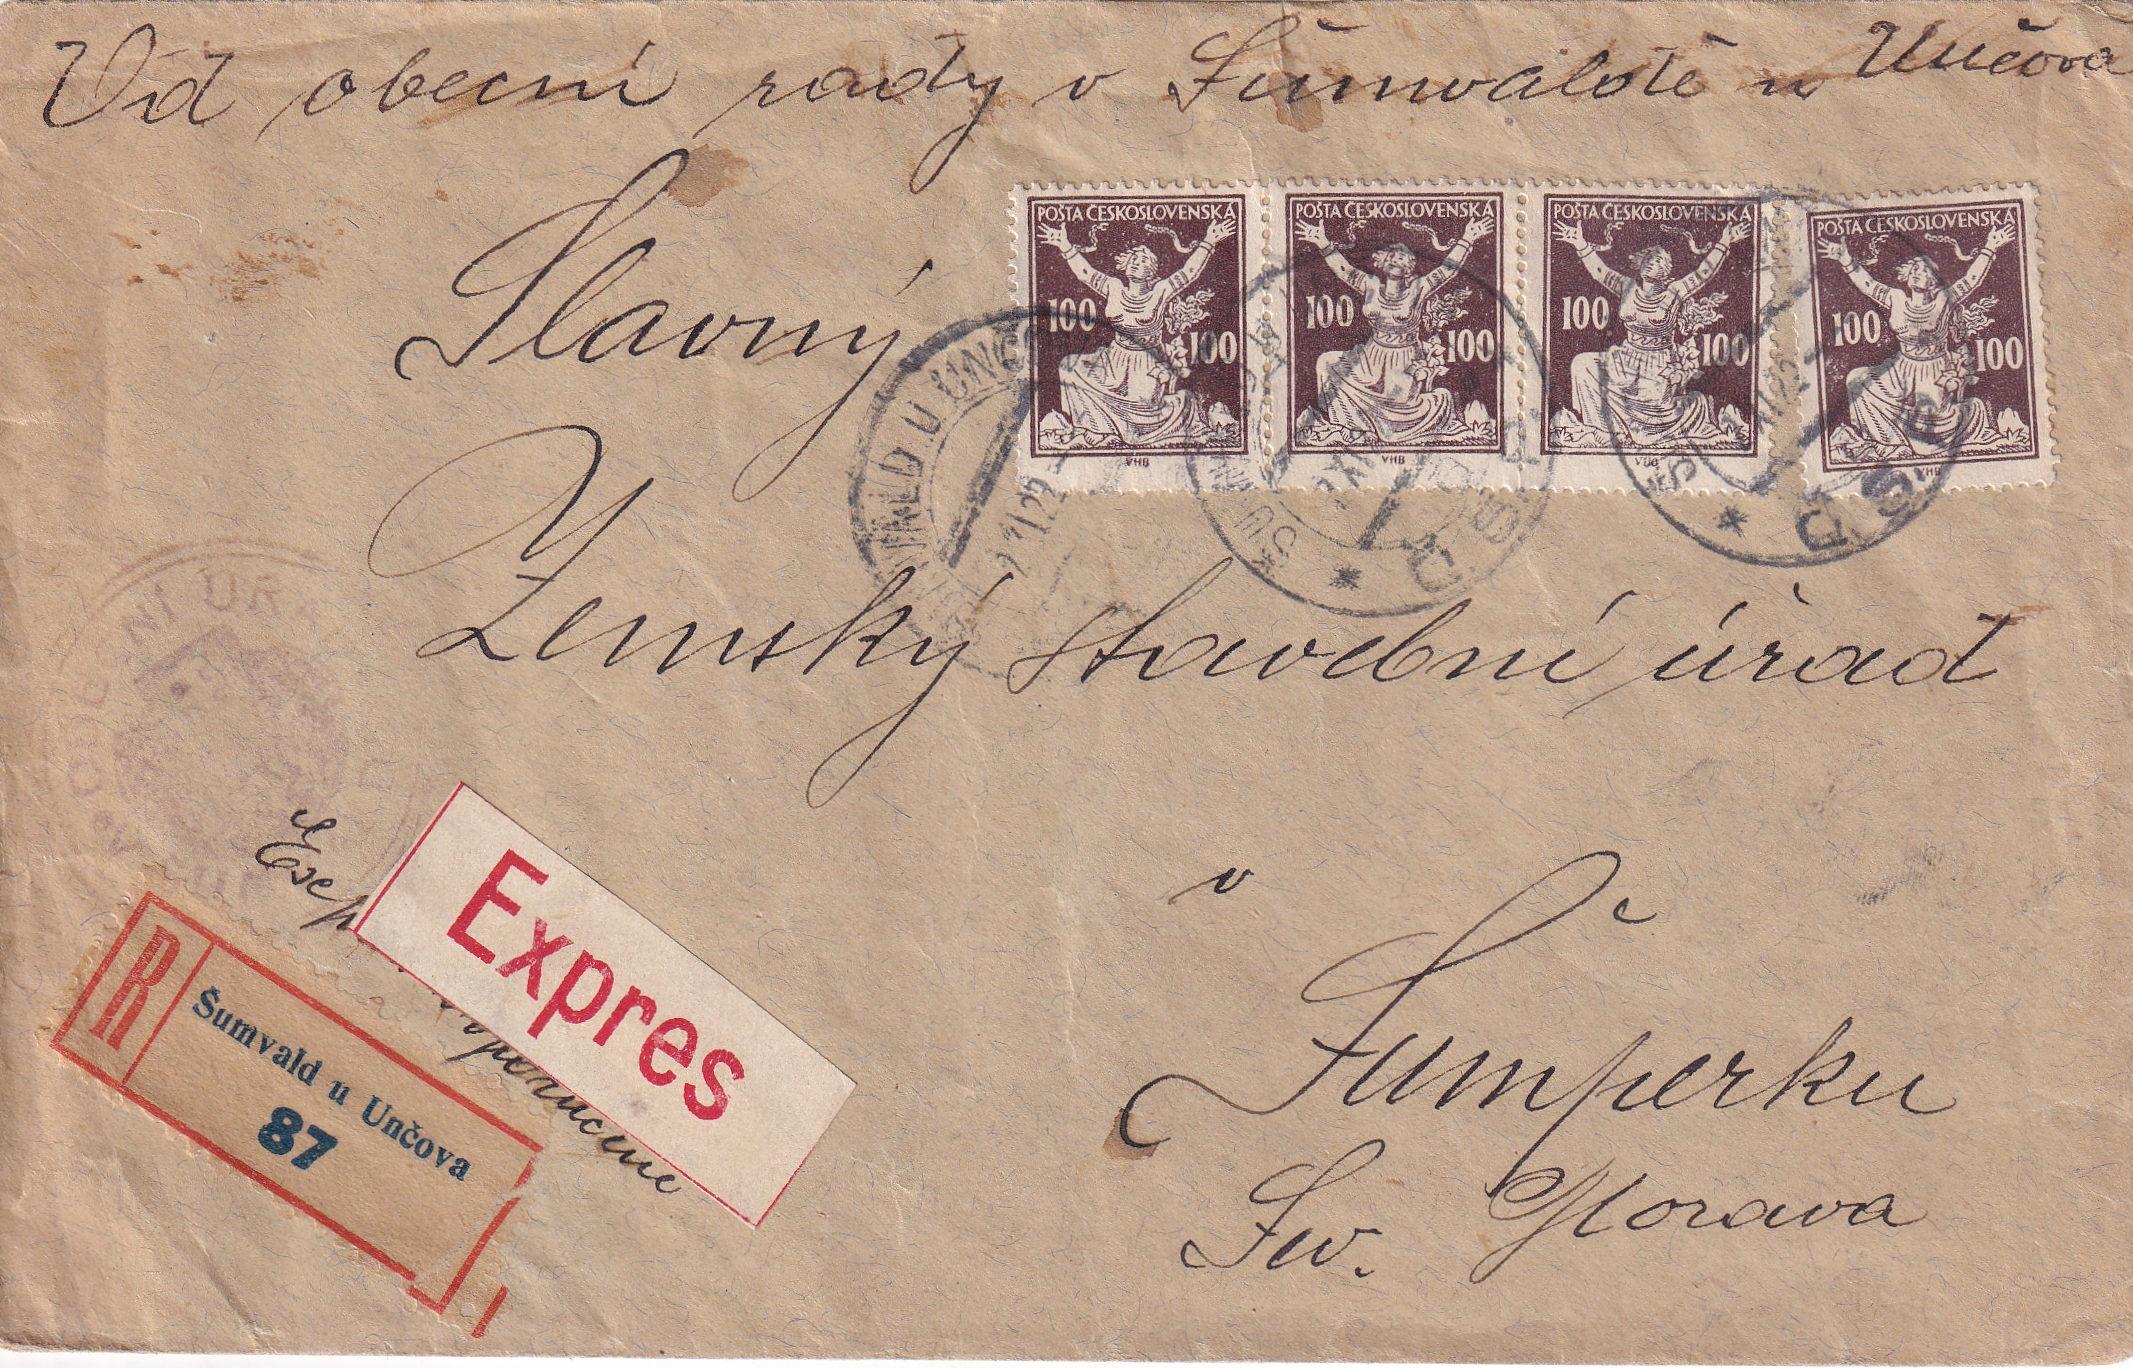 Od obecní rady v Šumvaldě u Unčova
POŠTA ČESKOSLOVENSKÁ
100
100
VHB
POŠTA ČESKOSLOVENSKÁ
100
100
VHB
POŠTA ČESKOSLOVENSKÁ
100
100
POŠTA ČESKOSLOVENSKÁ
100
100
VHB
Slavný
Zemský stavební úřad
v
Šumperku
Sev. Morava
Expres
R
Šumvald u Unčova
87